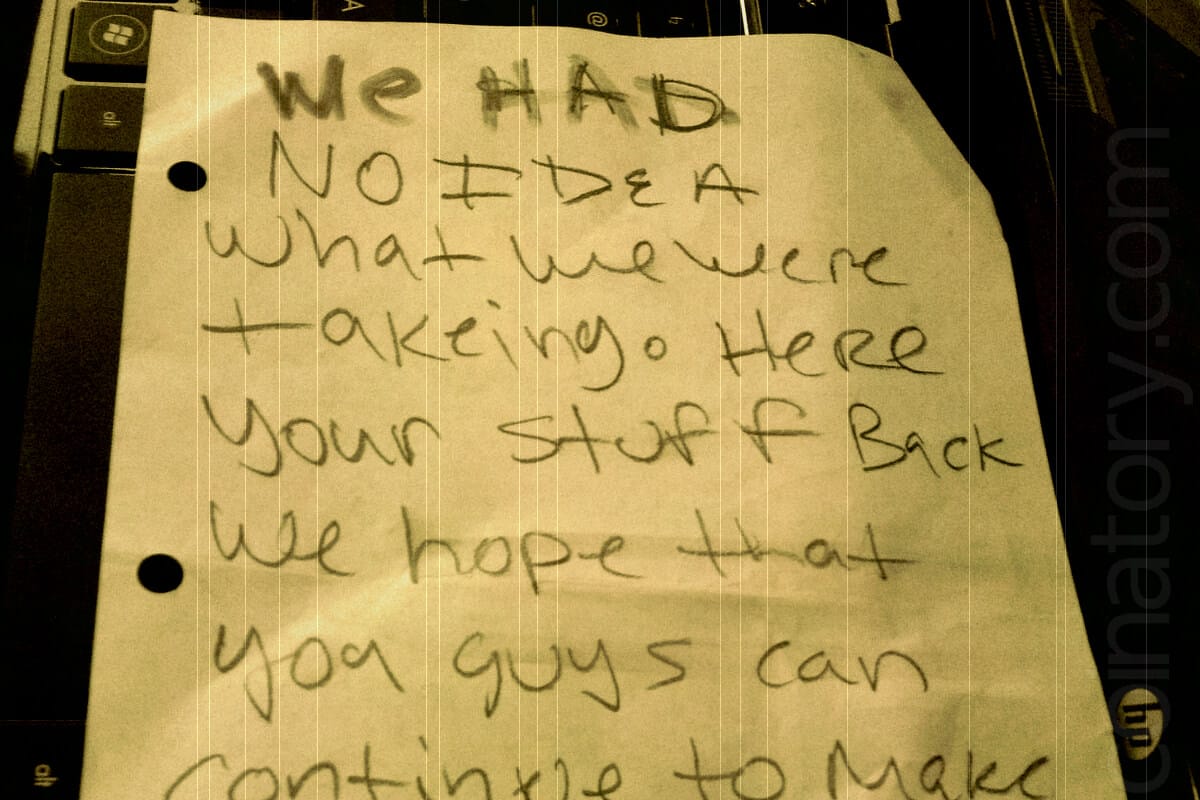 We HAD
NO IDEA
what we were
takeing. Here
your stuff Back
We hope that
you guys can
continue to Make
alt
alt
hp
coinatory.com